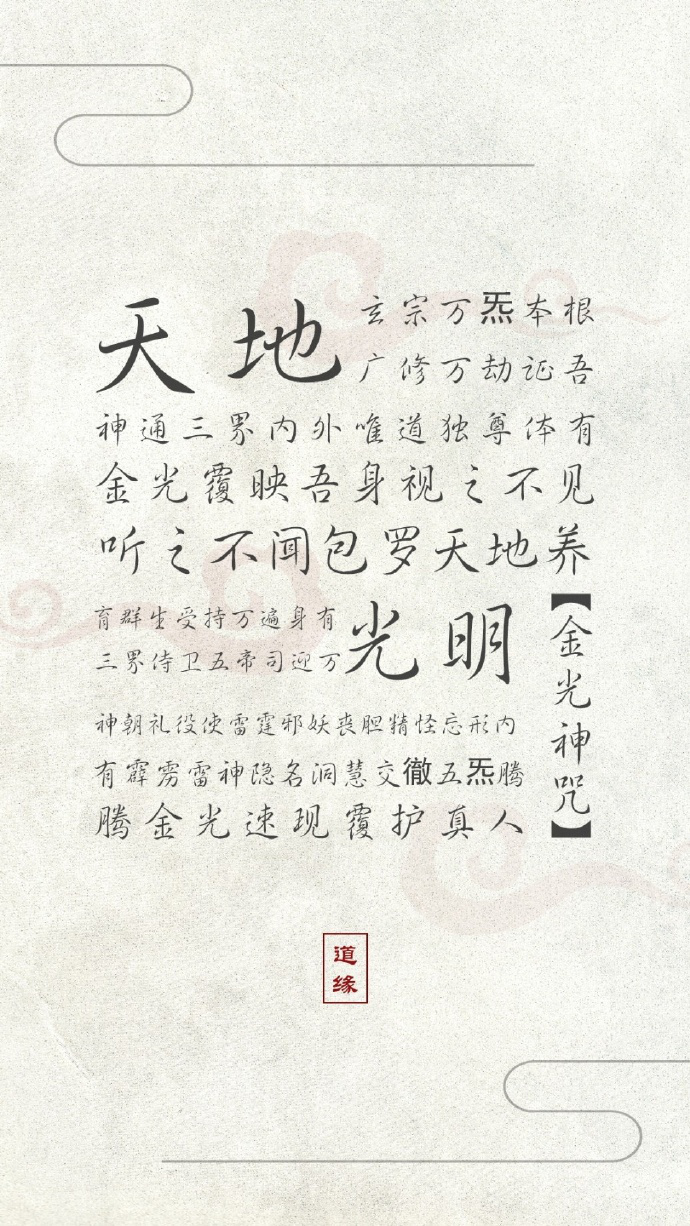 天地
玄宗万炁本根
广修万劫证吾
神通三界内外唯道独尊体有
金光覆映吾身视之不见
听之不闻包罗天地养
育群生受持万遍身有
光明
三界侍卫五帝司迎万
神朝礼役使雷霆邪妖丧胆精怪忘形内
有霹雳雷神隐名洞慧交徹五炁腾
腾金光速现覆护真人
【金光神咒】
道缘